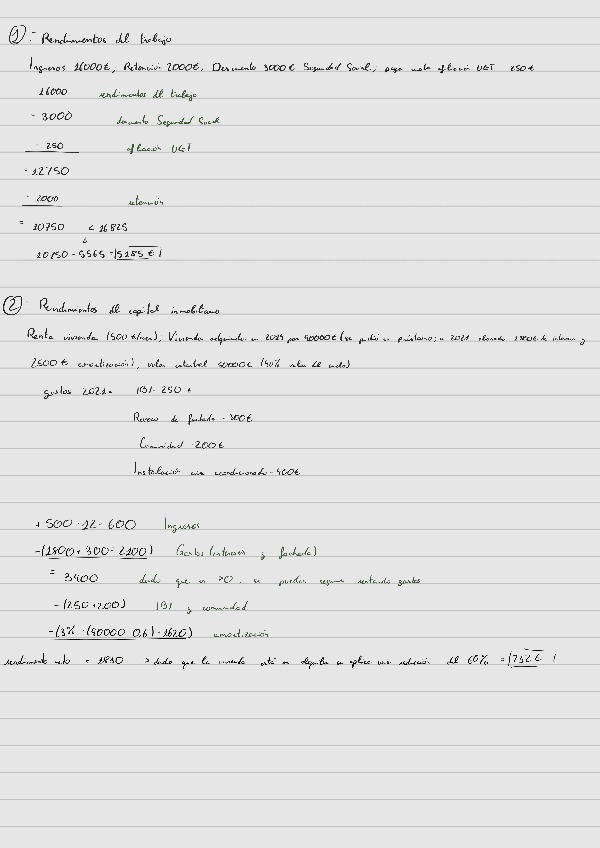 1 - Rendimientos del trabajo
Ingresos 16000€, Retención 2000€, Descuento 3000€ Seguridad Social, paga cuota afiliación UGT 250€
16000 rendimientos del trabajo
- 3000 descuento Seguridad Social
- 250 afiliación UGT
= 12750
- 2000 retención
= 10750 < 16825
10750 - 5565 = 5185 €
2 - Rendimientos del capital inmobiliario
Renta vivienda (500 €/mes); Vivienda adquirida en por 90000€ (se pidió un préstamo; en 2021 1800€ de intereses y
2500 € amortización); valor catastral 50000€ (40% valor del suelo)
gastos 2021 = IBI - 250 €
de fachada - 300€
Comunidad - 200€
Instalación aire acondicionado - 400€
+ 500 · 12 - 600 Ingresos
- (1800 + 300 = 2100) Gastos (intereses y fachada)
= 3400 dado que es >0, se pueden seguir restando gastos
- (250 + 200) IBI y comunidad
- (3% · (90000 · 0,6) = 1620) amortización
rendimiento neto = 1830 > dado que la vivienda está en alquiler se aplica una reducción del 60% = 732 €